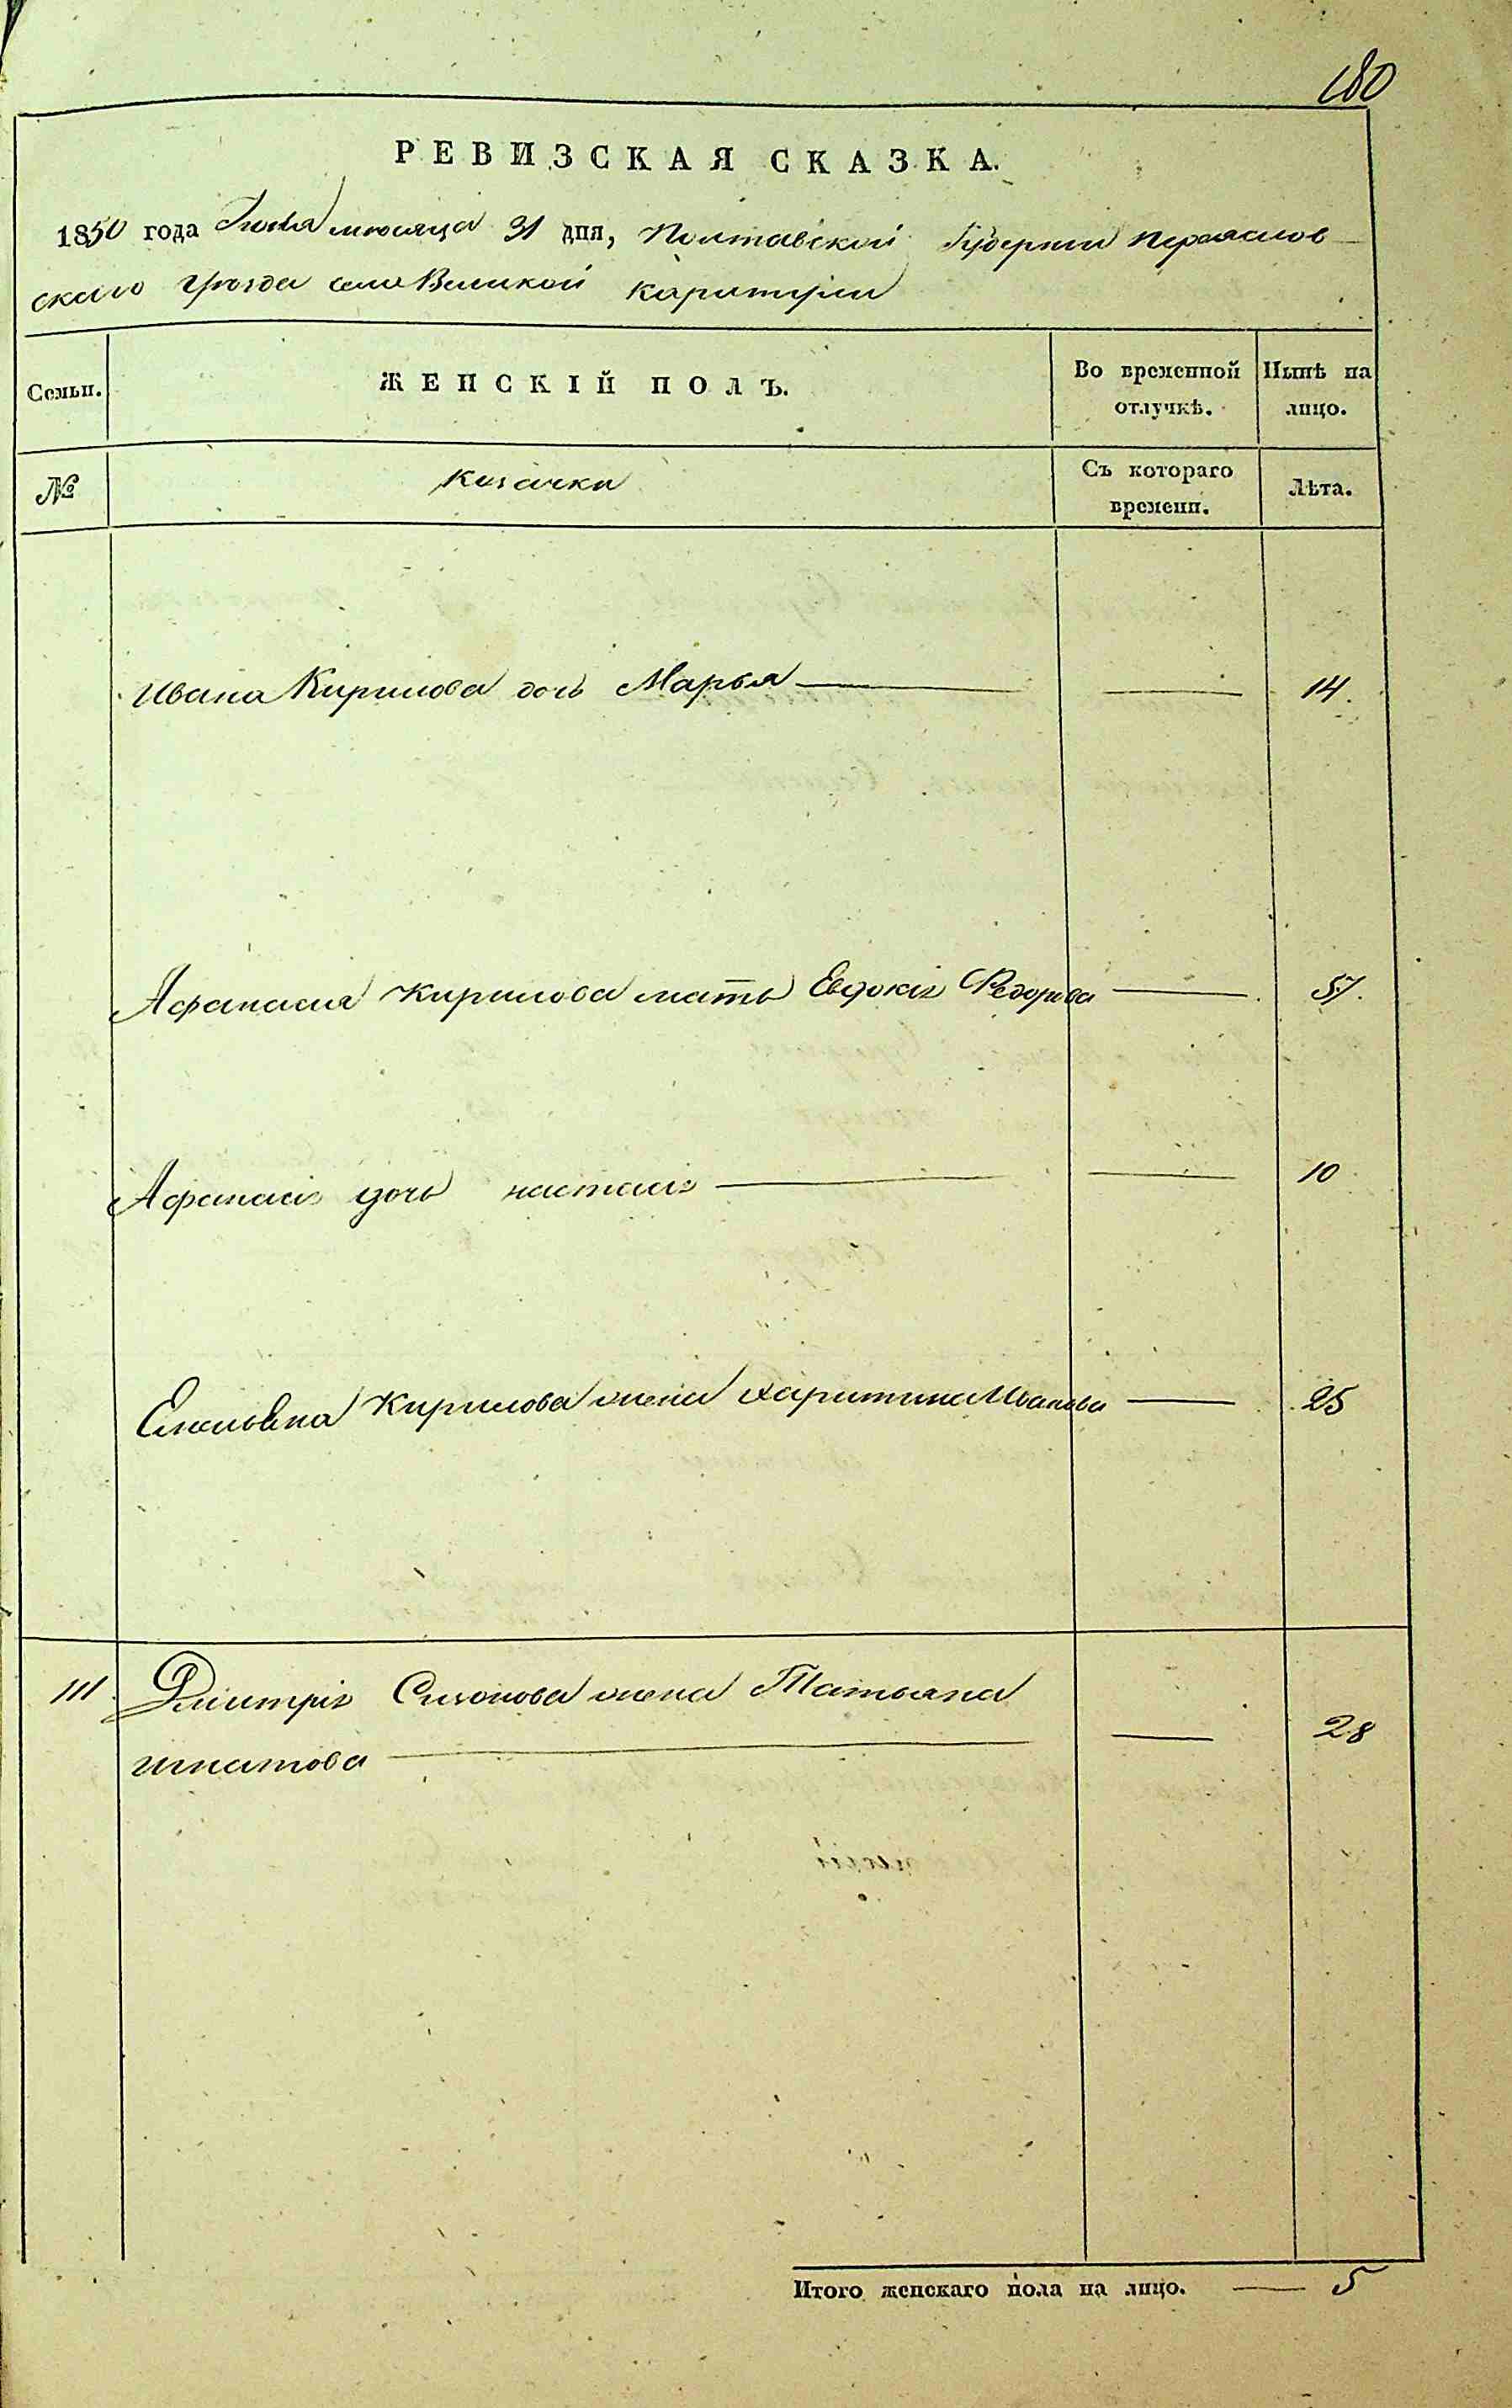 180
РЕВИЗСКАЯ СКАЗКА.
1850 года Июля месяца 31 дня, Полтавской Губернии Переяслов
скаго уезда села Великой Каратули
Семьи.
ЖЕНСКІЙ ПОЛЪ.
Во временной отлучкѣ.
Нынѣ на лицо.
№
Козачки
Съ котораго времени.
Лѣта.
Ивана Кирилова дочь Марья — — 14.
Афанасия Кирилова мать Евдокія Федорова — 57.
Афанасія дочь настасія — — 10
Емельяна Кирилова жена Харитина Иванова — 25
111 Дмитрія жена Татьяна
игнатова — — 28
Итого женскаго пола на лицо. — 5